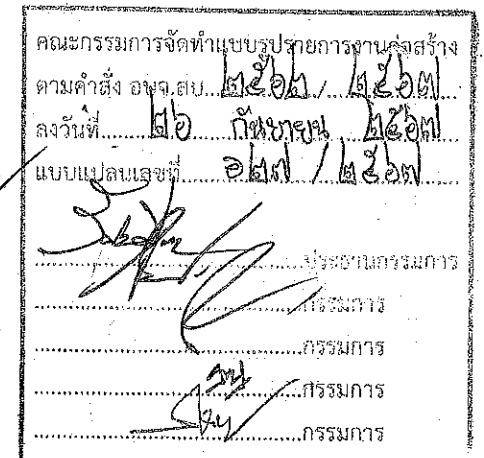 คณะกรรมการจัดทำแบบรูปรายการงานก่อสร้าง
ตามคำสั่ง อบจ.สบ. ๒๕๖๒ / ๒๕๖๗
ลงวันที่ ๒๖ กันยายน ๒๕๖๗
แบบแปลนเลขที่ ๑๒๗ / ๒๕๖๗
ประธานกรรมการ
กรรมการ
กรรมการ
กรรมการ
กรรมการ